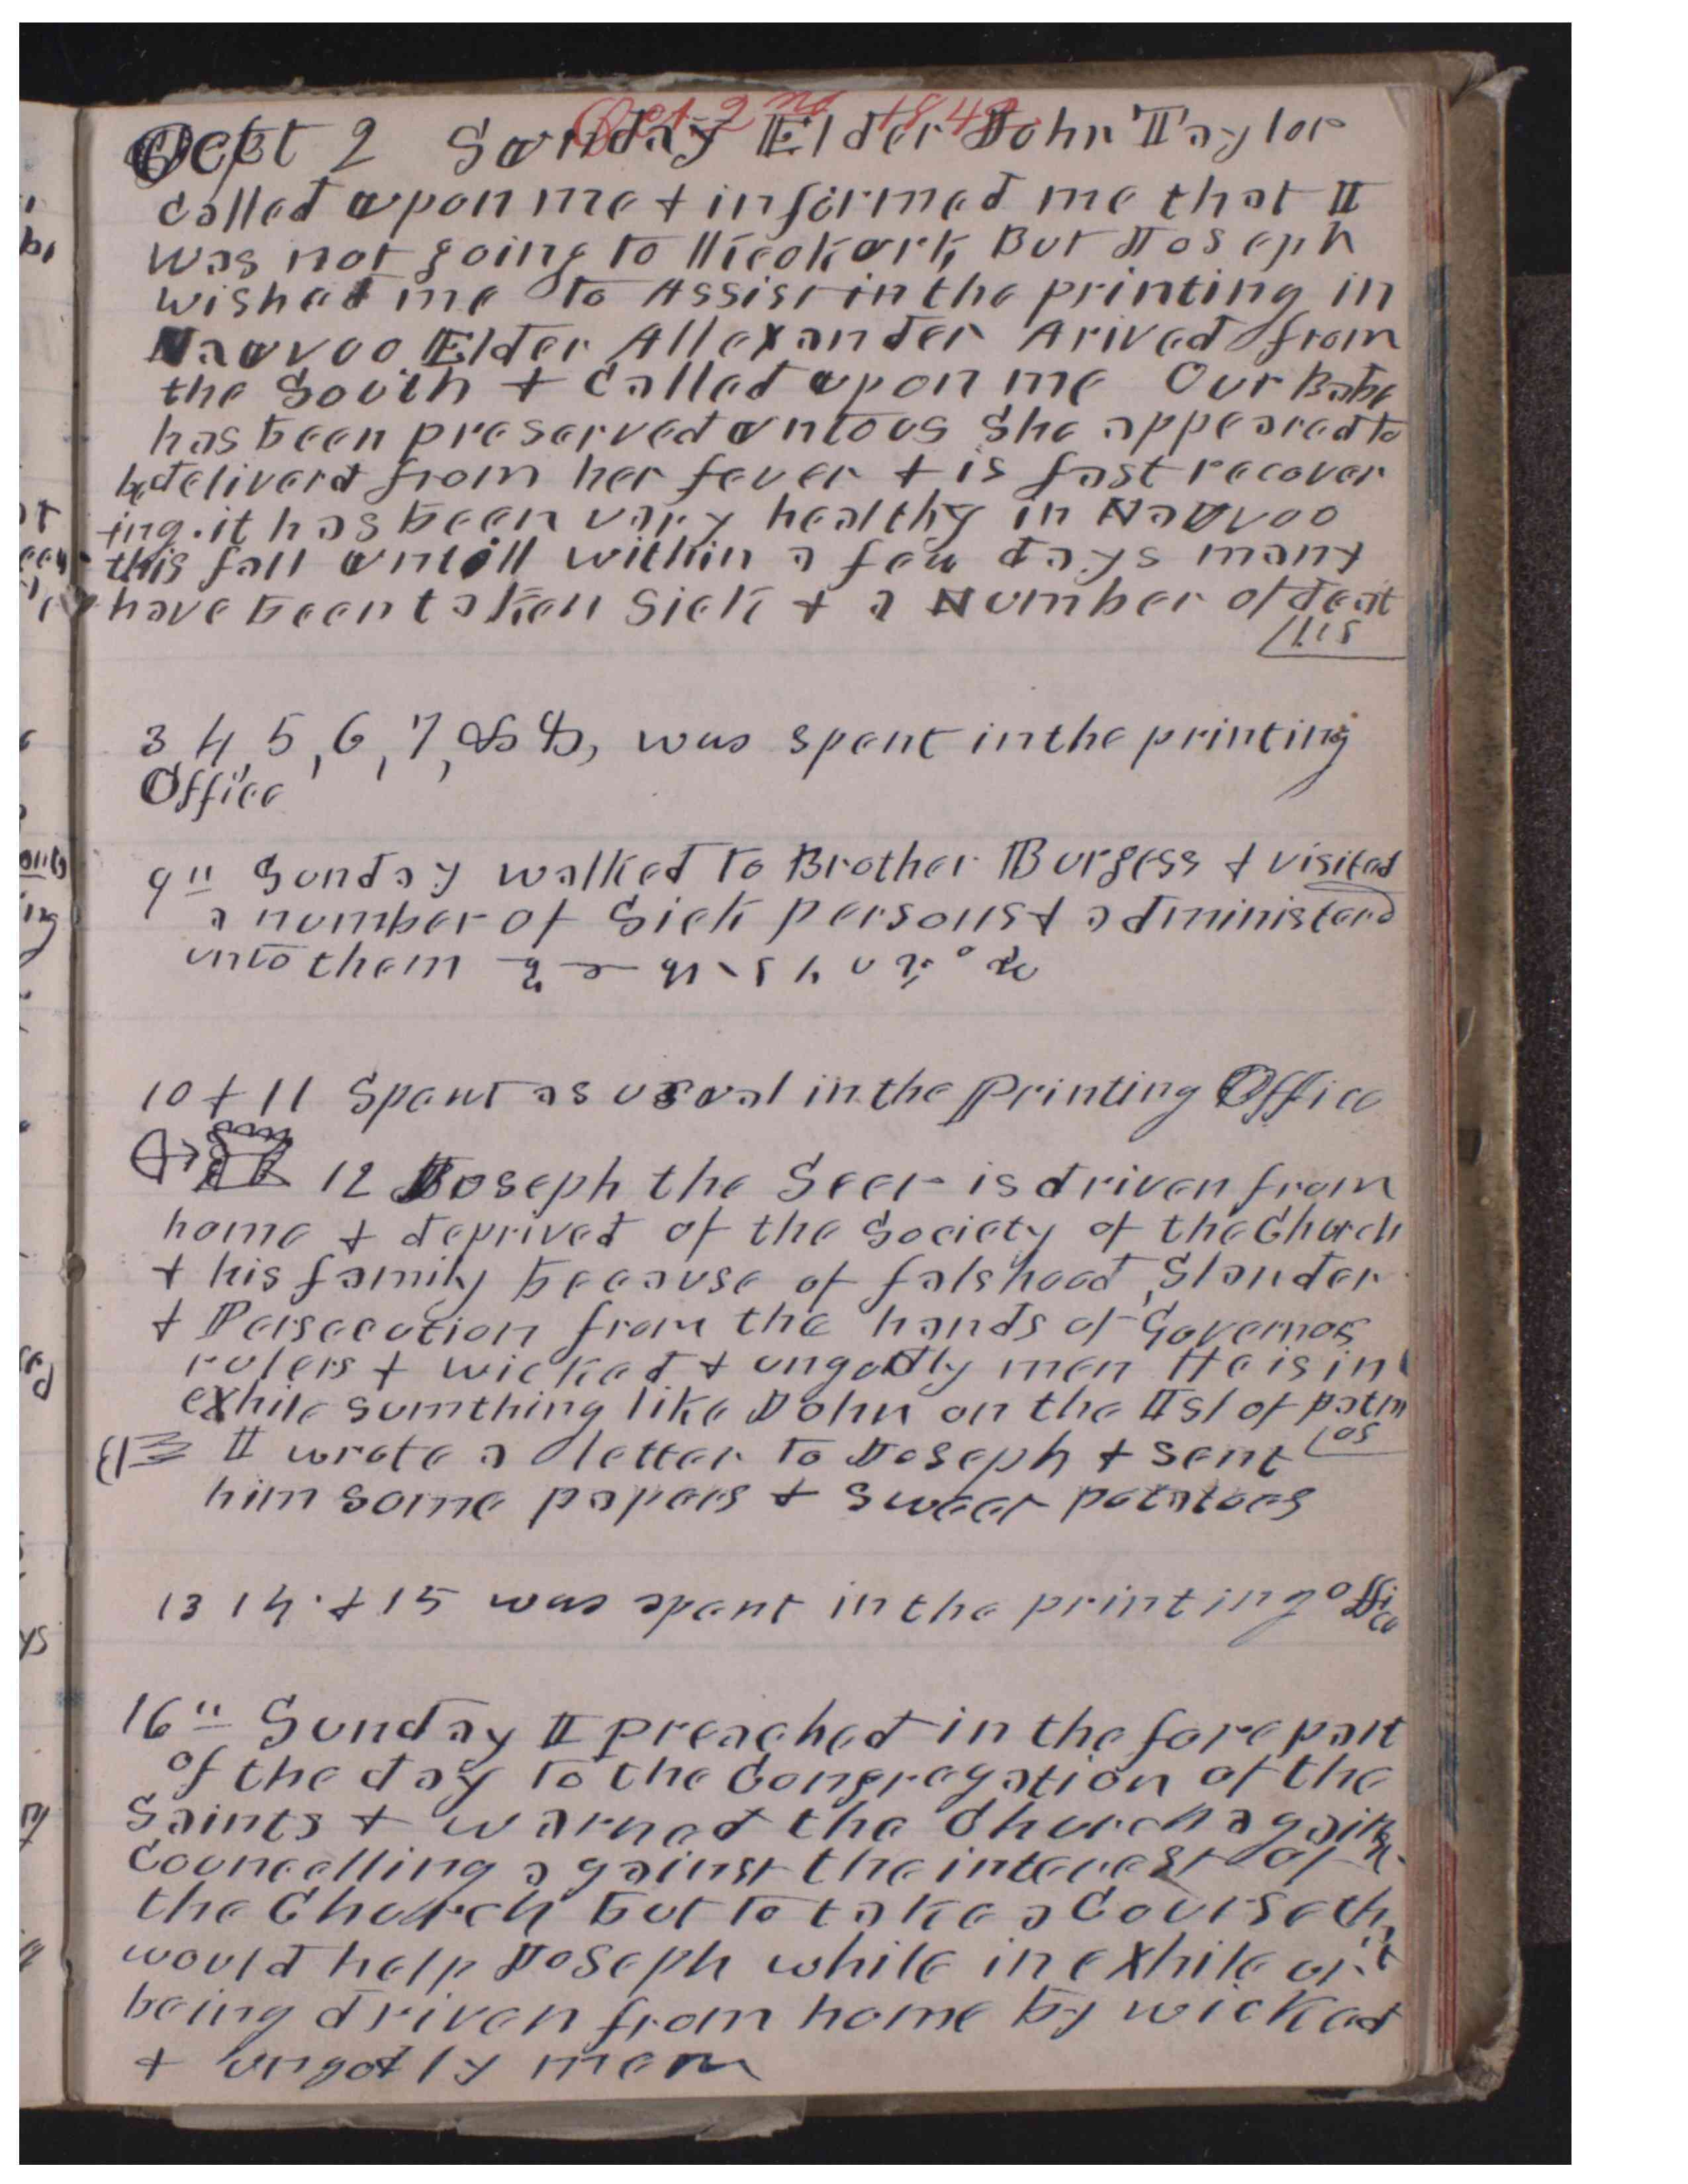 Oct 2nd 1842
Oct 2 Sunday Elder John Taylor
called upon me + informed me that I
was not going to Keokuk But Joseph
wished me to Assist in the printing in
Nauvoo Elder Allexander Arived from
the South + called upon me Our Babe
has been preserved untous She appeared to
be deliverd from her fever + is fast recover
ing. it has been vary healthy in Nauvoo
this fall untill within a few days many
have been taken Sick + a Number of deat
hs
3, 4, 5, 6, 7, & 8, was spent in the printing
Office
9" Sunday walked to Brother Burgess + visited
a number of Sick persons + administerd
unto them
10 + 11 Spent as usual in the Printing Office
12 Joseph the Seer is driven from
home + deprived of the Society of the Church
+ his family because of falshood, Slander
+ Persecution from the hands of Governors
rulers + wicked + ungodly men He is in
exhile sumthing like John on the Isl of patm
os
I wrote a letter to Joseph + sent
him some papers + sweet potatoes
13 14. + 15 was spent in the printing office
16" Sunday I preached in the fore part
of the day to the Congregation of the
Saints + warned the Church against
councelling against the interest of
the Church but to take a Course th
at
would help Joseph while in exhile or
being driven from home by wicked
+ ungodly men